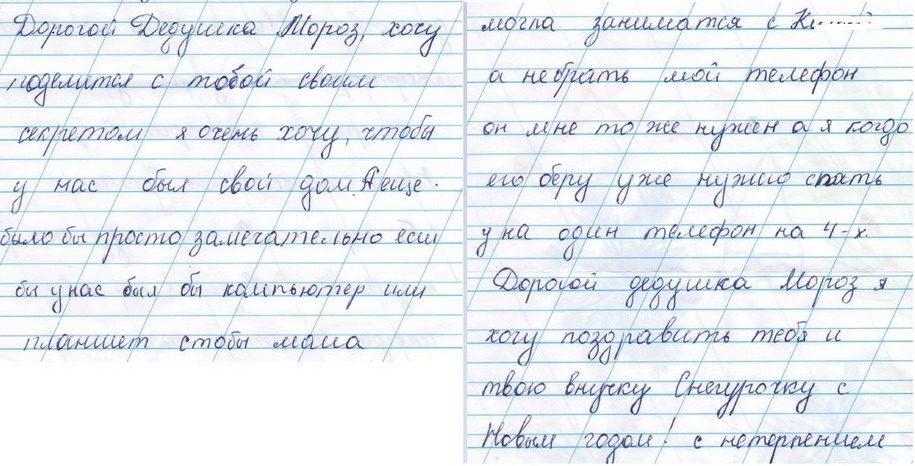 Дорогой Дедушка Мороз, хочу
поделится с тобой своим
секретом я очень хочу, чтобы
у нас был свой дом. А еще.
было бы просто замечательно если
бы у нас был бы компьютер или
планшет стобы мама
могла заниматся с К
а небрать мой телефон
он мне то же нужен а я когдо
его беру уже нужно спать
у на один телефон на 4-х.
Дорогой дедушка Мороз я
хочу поздравить тебя и
твою внучку Снегурочку с
Новым годом! с нетерпением